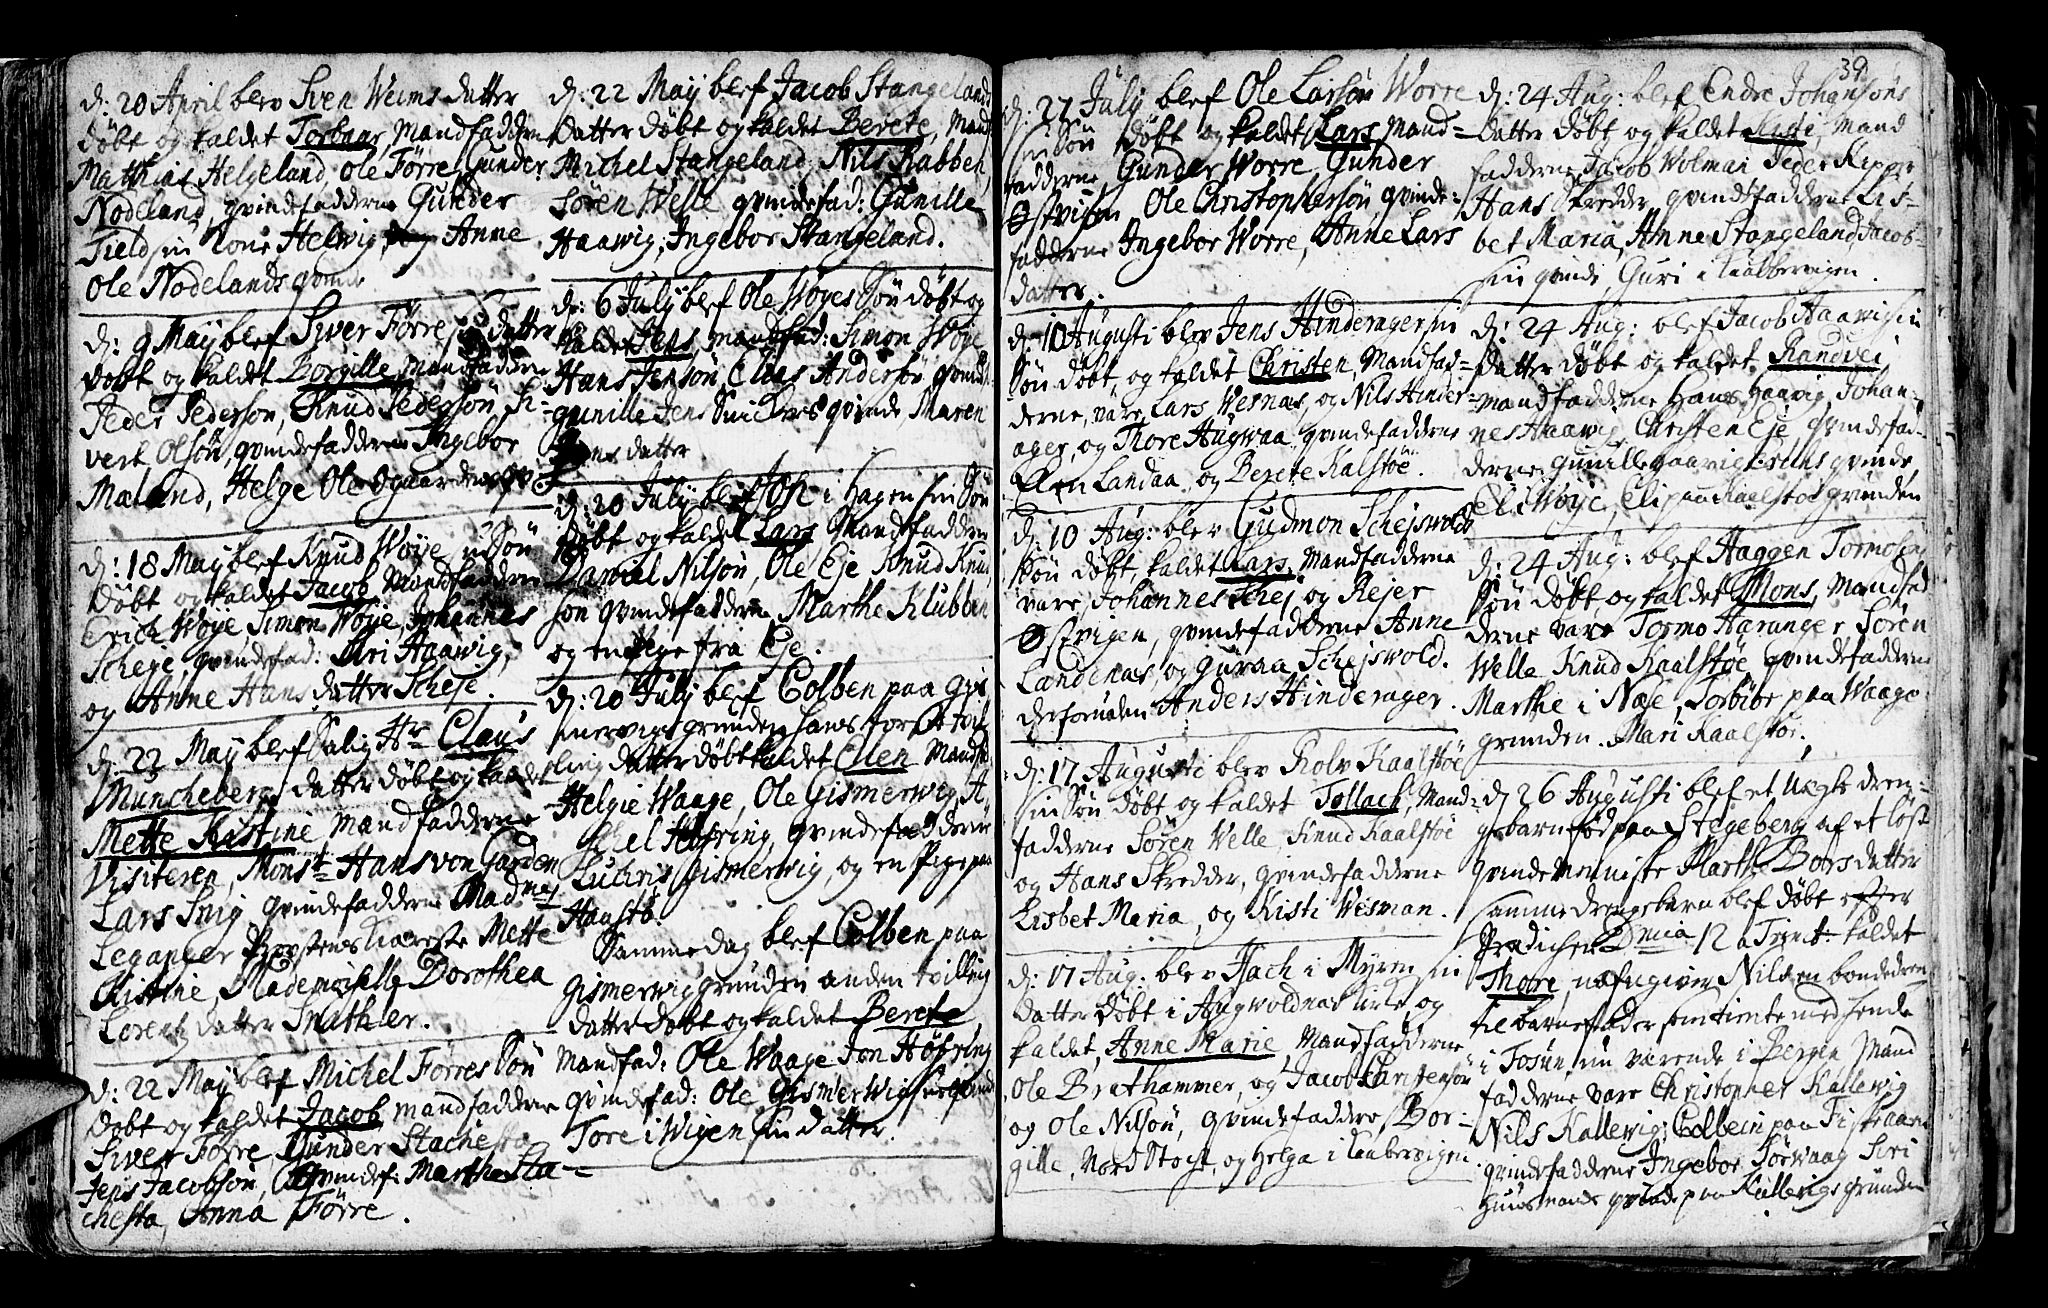 d: 20 April blev Sven Weims datter
døbt og kaldet Torbaar, Mandfaddern
Matthias Helgeland, Ole Førre, Gunder
Nodeland, qvindefadderne Gunder
Field sin Kone Helwig, Anne
Ole Nodelands qvinde
d: 9 May blef Siver Førre datter
døbt og kaldet Borgille, mandfadderne
Peder Pederson, Knud Pedersøn, Si-
vert Olsøn, qvindefadderne Ingebor
Maeland, Helge Ole Ogaardens
d: 18 May blef Knud Wøye sin Søn
døbt og kaldet Jacob Mandfaddern
Erich Wøye, Simon Wøye, Johannes
Scheje qvindefad: Mari Haawig,
og Anne Hans datter Scheje.
d: 22 May blef Salig Hr Claus
Müncheberg datter døbt og kaldet
Mette Kistine Mandfadderne
Visiteren, Mons. Hans von Garden
Lars Snig qvindefadderne Mad
Leganger Præstens Kiæreste Mette
Kistine, Mademoiselle Dorothea
Lorentz datter Smathler.
d: 22 May blef Michel Førres Søn
døbt og kaldet Jacob mandfadderne
Siver Førre, Gunder Stachesta
Jens Jacobsøn, qvindef: Marthe Sta-
chesta, Anna Førre.
d: 22 May blef Jacob Stangelands
datter døbt og kaldet Berete, Mand
Michel Stangeland, Nils Rabben
Søren Welle qvindefad: Gunille
Haawig, Ingebor Stangeland.
d: 6 July blef Ole Wøyes Søn døbt og
kaldet Jens, mandfad: Simon Wøye
Hans Jensøn, Claas Andersøn qvindf
gunille Jens Smides qvinde, Maren
datter
d: 20 July blef Jon i Hagen sin Søn
døbt og kaldet Lars Mandfaddern
Daniel Nilsøn, Ole Eje Knud Knud
søn qvindefaddern Marthe Klubben
og en Pige fra Eje.
d: 20 July blef Colben paa Gis
mervigs grunden hans første tvil
ling datter døbt kaldet Ellen Mandfa
Helgie Waage, Ole Gismerwig, A,
xel Høyring, qvindefadderne
Luchris Gismerwig, og en Pige paa
Haustb.
Samme dag blef Colben paa
Gismerwig grunden anden tvilling
datter døbt og kaldet Berete
Mandfad: Ole Waage Jon Høyring
qvindefad: Ole Gismerwigs qvinde
Tore i Wigen sin datter.
39
d: 27 July blef Ole Larsøn Worre
sin Søn døbt og kaldet Lars, Mand=
fadderne, Gunder Worre, Gunder
Østvigen Ole Christophersøn, qvinde=
fadderne Ingebor Worre, Anne Lars
datter.
d: 10 Augusti blev Jens Hinderager sin
Søn døbt, og kaldet Christen, Mandfad=
derne, vare Lars Wesnas, og Nils Hinder=
ager, og Thore Hugwaa qvindefadderne
Elen Landaa, og Berete Kalstøe.
d: 10 Aug: blev Gudmon Schejswolds
Søn døbt, kaldet Lars, Mandfadderne
vare, Johannes Schej og Rejer
Østvigen, qvindefadderne Anne
Landenas, og Guraa Schejswold.
desforuden Anders Hinderager.
d: 17 Augusti blev Rolv Kaalstøe
sin Søn døbt og kaldet Tollach, Mand=
fadderne Søren Welle, Knud Kaalstøe
og Hans Skredder, qvindefadderne
Lisbet Maria, og Kisti Wesman.
d: 17 Aug: blev Isach i Myren sin
datter døbt i Augvoldnas Kirke, og
kaldet, Anne Marie, Mandfadderne
Ole Brathammer, og Jacob Christensøn
og Ole Nilsøn, qvindefaddere, Bor=
gille, Nord Stogt, og Helga i Kaabervigen
d: 24 Aug: blef Endre Johansøns
datter døbt og kaldet Kisti, Mand
fadderne Jacob Wolman Peder Kipge
Hans Skredder qvindefadderne Lis=
bet Maria, Anne Stangeland Jacob=
sin qvinde, Guri i Kaabbervigen.
d: 24 Aug: blef Jacob Haawig sin
datter døbt og kaldet Randvei
mandfadderne Hans Haavig, Johan-
nes Haawig, Christen Eje, qvindefad-
derne, Gunille Haavig Erens qvinde,
Eli Wøye, Eli paa Kaalstøe grunden
d: 24 Aug: blef Haggen Tormosen
Søn døbt, og kaldet Mons, Mandfad
derne vare Tormo Haranger Søren
Welle Knud Kaalstøe qvindefadderne
Marthe i Næe, Torbiør paa Waage
grunden. Mari Kaalstøe.
d 26 Augusti blef et uægte dren-
gebarn fød paa Stegeberg af et løst
qvindemenniske Marthe Bors datter
samme drengebarn blef døbt efter
Prædichen Dnica 12 a Trinit: kaldet
Thore, udgiver Nils en bondedreng
til barnefader som tiente med hende
i Fosen, nu værende i Bergen Mand
fadderne vare Christopher Kallewig
Nils Kallevig, Colbein paa Fiskaaen
qvindefadderne Ingebor Sørwaag Siri
Huusmands qvinde paa Kallevigs grunden